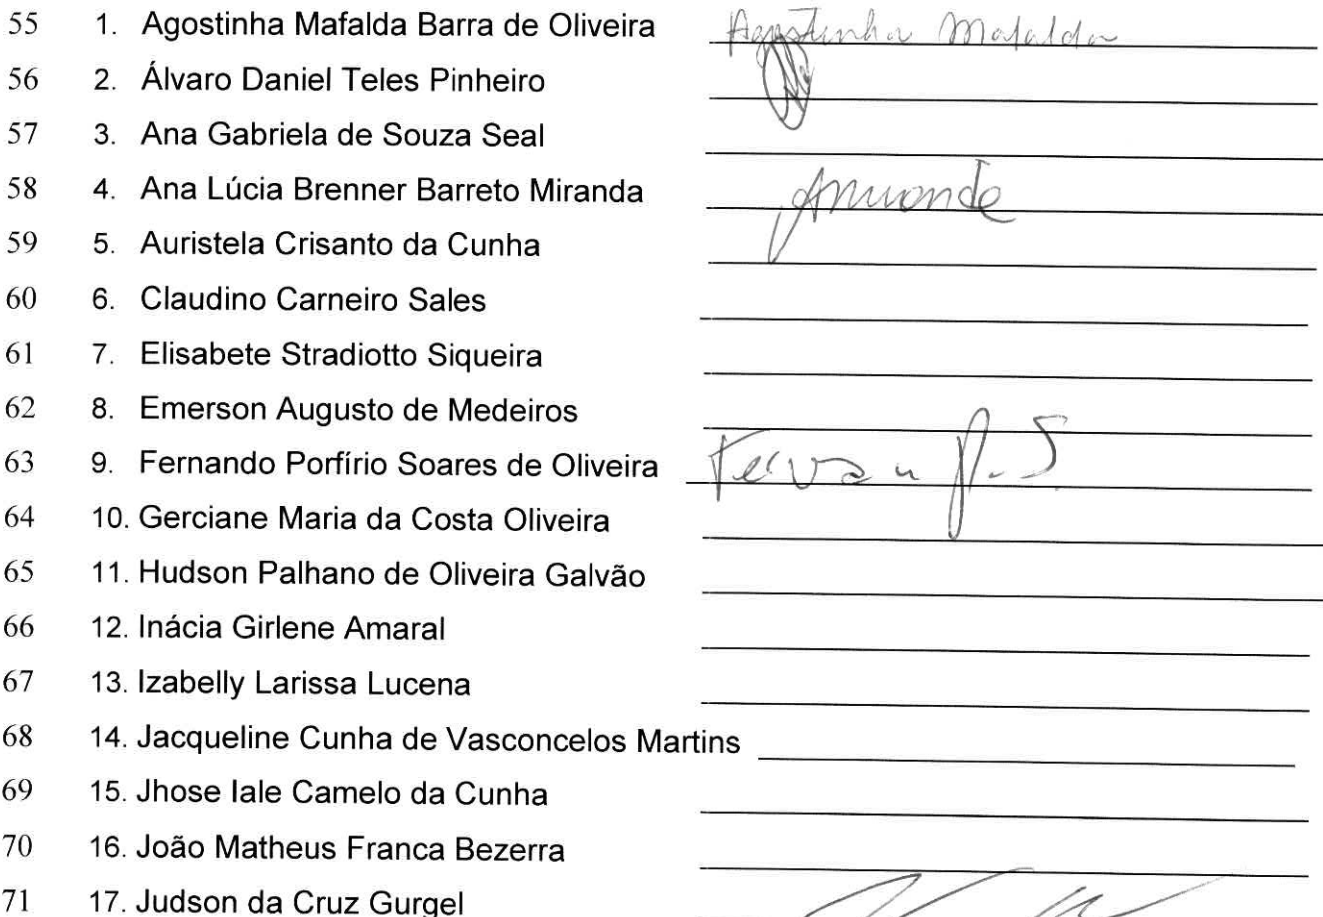 55 1. Agostinha Mafalda Barra de Oliveira Agostinha Mafalda
56 2. Álvaro Daniel Teles Pinheiro
57 3. Ana Gabriela de Souza Seal
58 4. Ana Lúcia Brenner Barreto Miranda
59 5. Auristela Crisanto da Cunha
60 6. Claudino Carneiro Sales
61 7. Elisabete Stradiotto Siqueira
62 8. Emerson Augusto de Medeiros
63 9. Fernando Porfírio Soares de Oliveira
64 10. Gerciane Maria da Costa Oliveira
65 11. Hudson Palhano de Oliveira Galvão
66 12. Inácia Girlene Amaral
67 13. Izabelly Larissa Lucena
68 14. Jacqueline Cunha de Vasconcelos Martins
69 15. Jhose Iale Camelo da Cunha
70 16. João Matheus Franca Bezerra
71 17. Judson da Cruz Gurgel